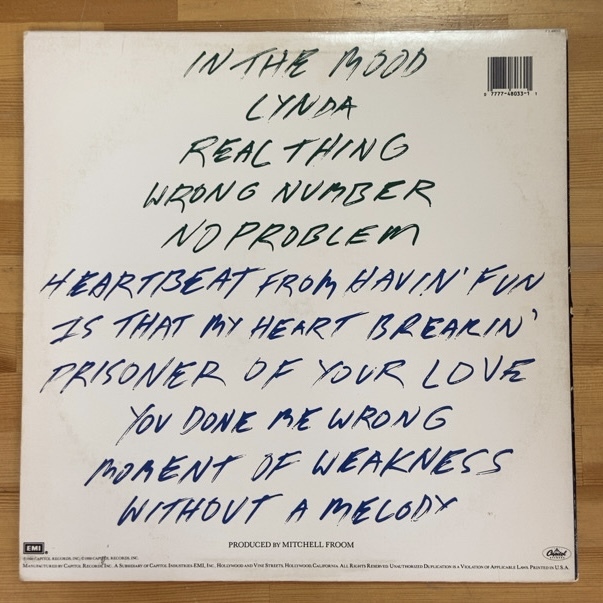 IN THE MOOD
LYNDA
REAL THING
WRONG NUMBER
NO PROBLEM
HEARTBEAT FROM HAVIN' FUN
IS THAT MY HEART BREAKIN'
PRISONER OF YOUR LOVE
YOU DONE ME WRONG
MOMENT OF WEAKNESS
WITHOUT A MELODY
0 7777-48033-1 1
PRODUCED BY MITCHELL FROOM
EMI
Capitol
MANUFACTURED BY CAPITOL RECORDS, INC. A SUBSIDIARY OF CAPITOL INDUSTRIES-EMI, INC. HOLLYWOOD AND VINE STREETS, HOLLYWOOD, CALIFORNIA. ALL RIGHTS RESERVED. UNAUTHORIZED DUPLICATION IS A VIOLATION OF APPLICABLE LAWS. PRINTED IN U.S.A.